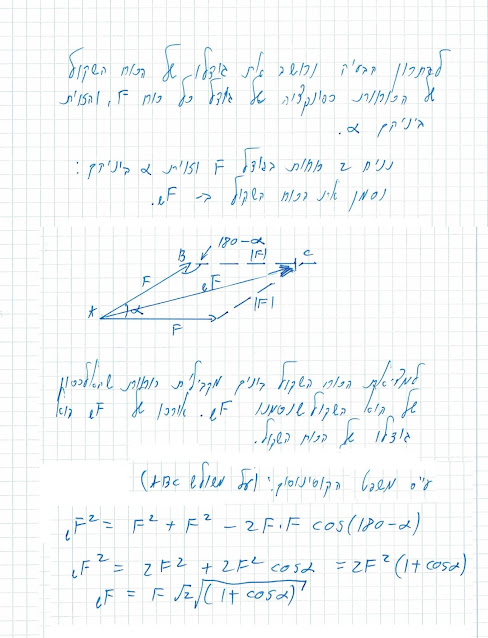 לפתרון הבעיה נחשב את גודלו של הכוח השקול
של הכוחות כפונקציה של גודל כל כוח F, והזוית
ביניהם α.
נניח 2 כוחות בגודל F וזוית α ביניהם:
נסמן את הכוח השקול ב- F
180-α
B |F| C
F F
A α |F|
F
הכוח השקול בונים מקבילית כוחות
של הוא השקול שנסמנו F. אורכו של F הוא
גודלו של הכוח השקול.
ע"פ משפט הקוסינוסים: (על משולש ABC)
F² = F² + F² - 2F·F cos(180-α)
F² = 2F² + 2F² cosα = 2F²(1+cosα)
F = F √2 √(1+cosα)